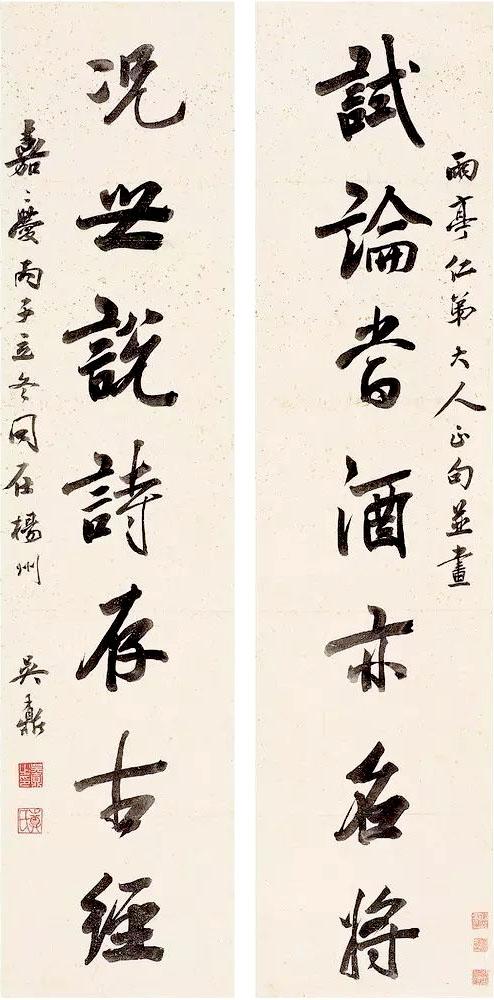 雨亭仁弟大人正句並書
試論嘗酒亦名將
況世說詩存古經
嘉慶丙子立冬同在楊州 吳鼒